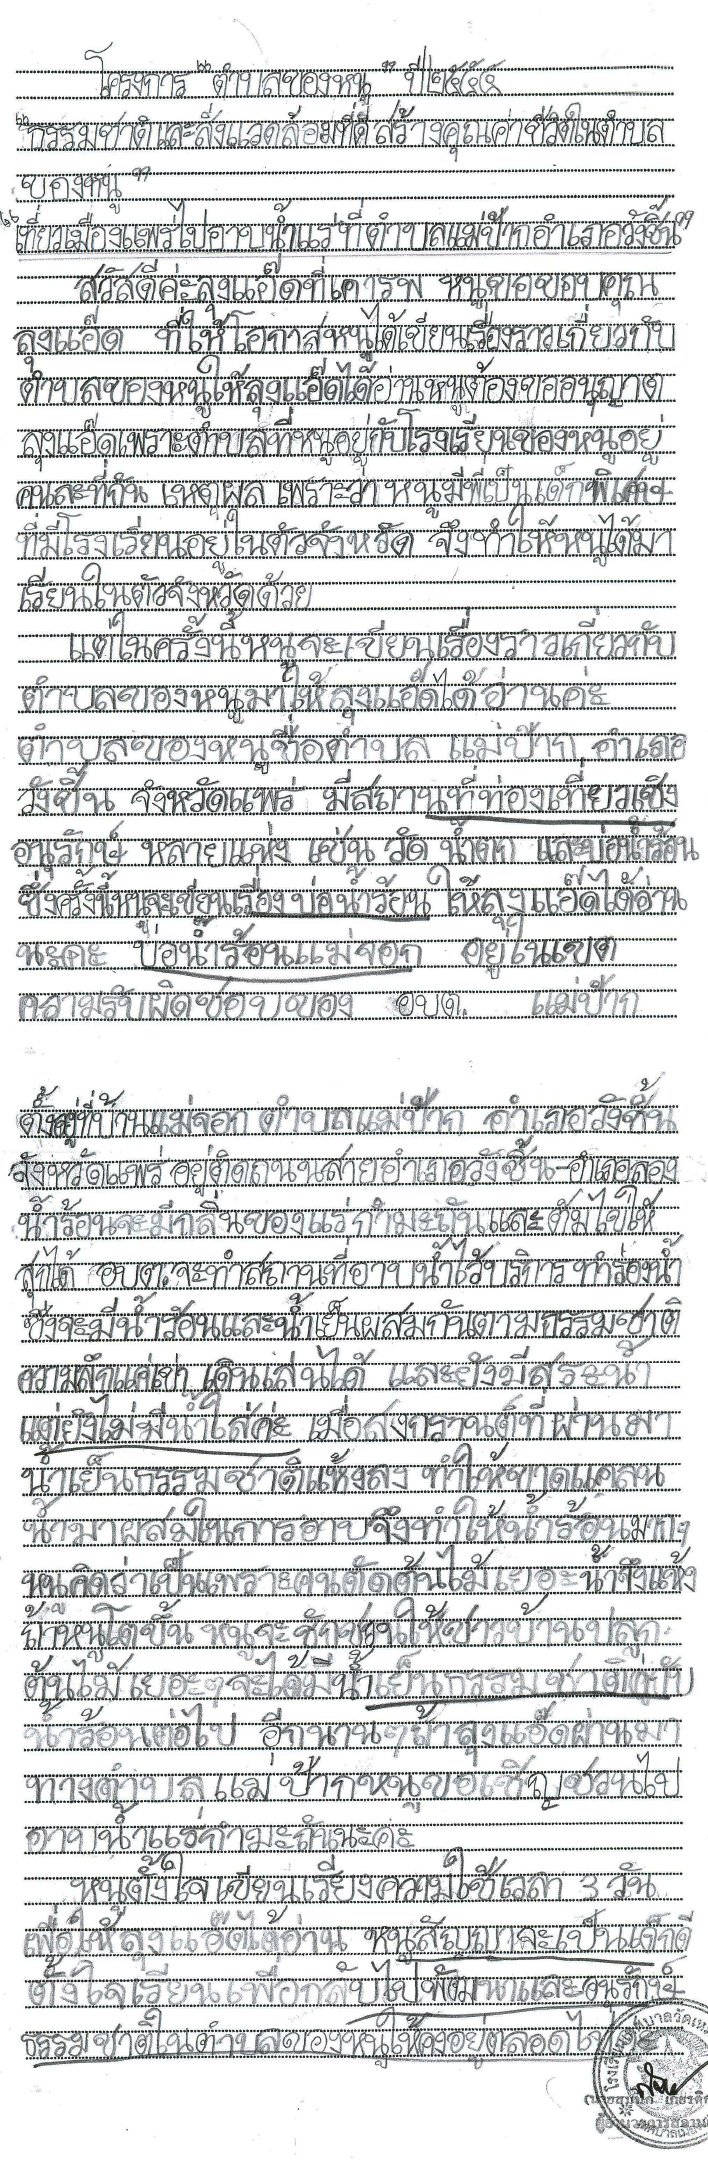 โครงการ "ตำบลของหนู" ปี๒๕๕๕
"ธรรมชาติและสิ่งแวดล้อมที่ดี สร้างคุณค่าชีวิตในตำบล
ของหนู"
"เที่ยวเมืองแพร่ไปอาบน้ำแร่ที่ตำบลแม่ป้ากอำเภอวังชิ้น"
สวัสดีค่ะลุงแอ๊ดที่เคารพ หนูขอขอบคุณ
ลุงแอ๊ด ที่ให้โอกาสหนูได้เขียนเรื่องราวเกี่ยวกับ
ตำบลของหนูให้ลุงแอ๊ดได้อ่านหนูต้องขออนุญาต
ลุงแอ๊ดเพราะตำบลที่หนูอยู่กับโรงเรียนของหนูอยู่
คนละที่กัน เหตุผล เพราะว่า หนูมีพี่เป็นเด็กพิเศษ
ที่มีโรงเรียนอยู่ในตัวจังหวัด จึงทำให้หนูได้มา
เรียนในตัวจังหวัดด้วย
แต่ในครั้งนี้หนูจะเขียนเรื่องราวเกี่ยวกับ
ตำบลของหนูมาให้ลุงแอ๊ดได้อ่านค่ะ
ตำบลของหนูชื่อตำบล แม่ป้าก อำเภอ
วังชิ้น จังหวัดแพร่ มีสถานที่ท่องเที่ยวเชิง
อนุรักษ์ หลายแห่ง เช่น วัด น้ำตก และบ่อน้ำร้อน
ซึ่งครั้งนี้หนูจะเขียนเรื่องบ่อน้ำร้อน ให้ลุงแอ๊ดได้อ่าน
นะคะ บ่อน้ำร้อนแม่จอก อยู่ในเขต
ความรับผิดชอบของ อบต. แม่ป้าก
ตั้งอยู่ที่บ้านแม่จอก ตำบลแม่ป้าก อำเภอวังชิ้น
จังหวัดแพร่ อยู่ติดถนนสายอำเภอวังชิ้น-อำเภอลอง
น้ำร้อนจะมีกลิ่นของแร่กำมะถันและต้มไข่ให้
สุกได้ อบต.จะทำสถานที่อาบน้ำไว้บริการ ทำร่องน้ำ
ซึ่งจะมีน้ำร้อนและน้ำเย็นผสมกันตามธรรมชาติ
ความลึกแค่เข่า เดินเล่นได้ และยังมีสระน้ำ
แต่ยังไม่มีน้ำใส่ค่ะ เมื่อสงกรานต์ที่ผ่านมา
น้ำเย็นธรรมชาติแห้งลง ทำให้ขาดแคลน
น้ำมาผสมในการอาบจึงทำให้น้ำร้อนมากๆ
หนูคิดว่าเป็นเพราะคนตัดต้นไม้เยอะน้ำจึงแห้ง
ถ้าหนูโตขึ้น หนูจะชักชวนให้ชาวบ้านปลูก
ต้นไม้เยอะๆจะได้มีน้ำเย็นธรรมชาติคู่กับ
น้ำร้อนต่อไป อีกนานๆถ้าลุงแอ๊ดผ่านมา
ทางตำบลแม่ป้ากหนูขอเชิญชวนไป
อาบน้ำแร่กำมะถันนะคะ
หนูตั้งใจเขียนเรียงความใช้เวลา 3 วัน
เพื่อให้ลุงแอ๊ดได้อ่าน หนูสัญญาจะเป็นเด็กดี
ตั้งใจเรียนเพื่อกลับไปพัฒนาและอนุรักษ์
ธรรมชาติในตำบลของหนูให้คงอยู่ตลอดไป
โรงเรียนเทศบาลวัด